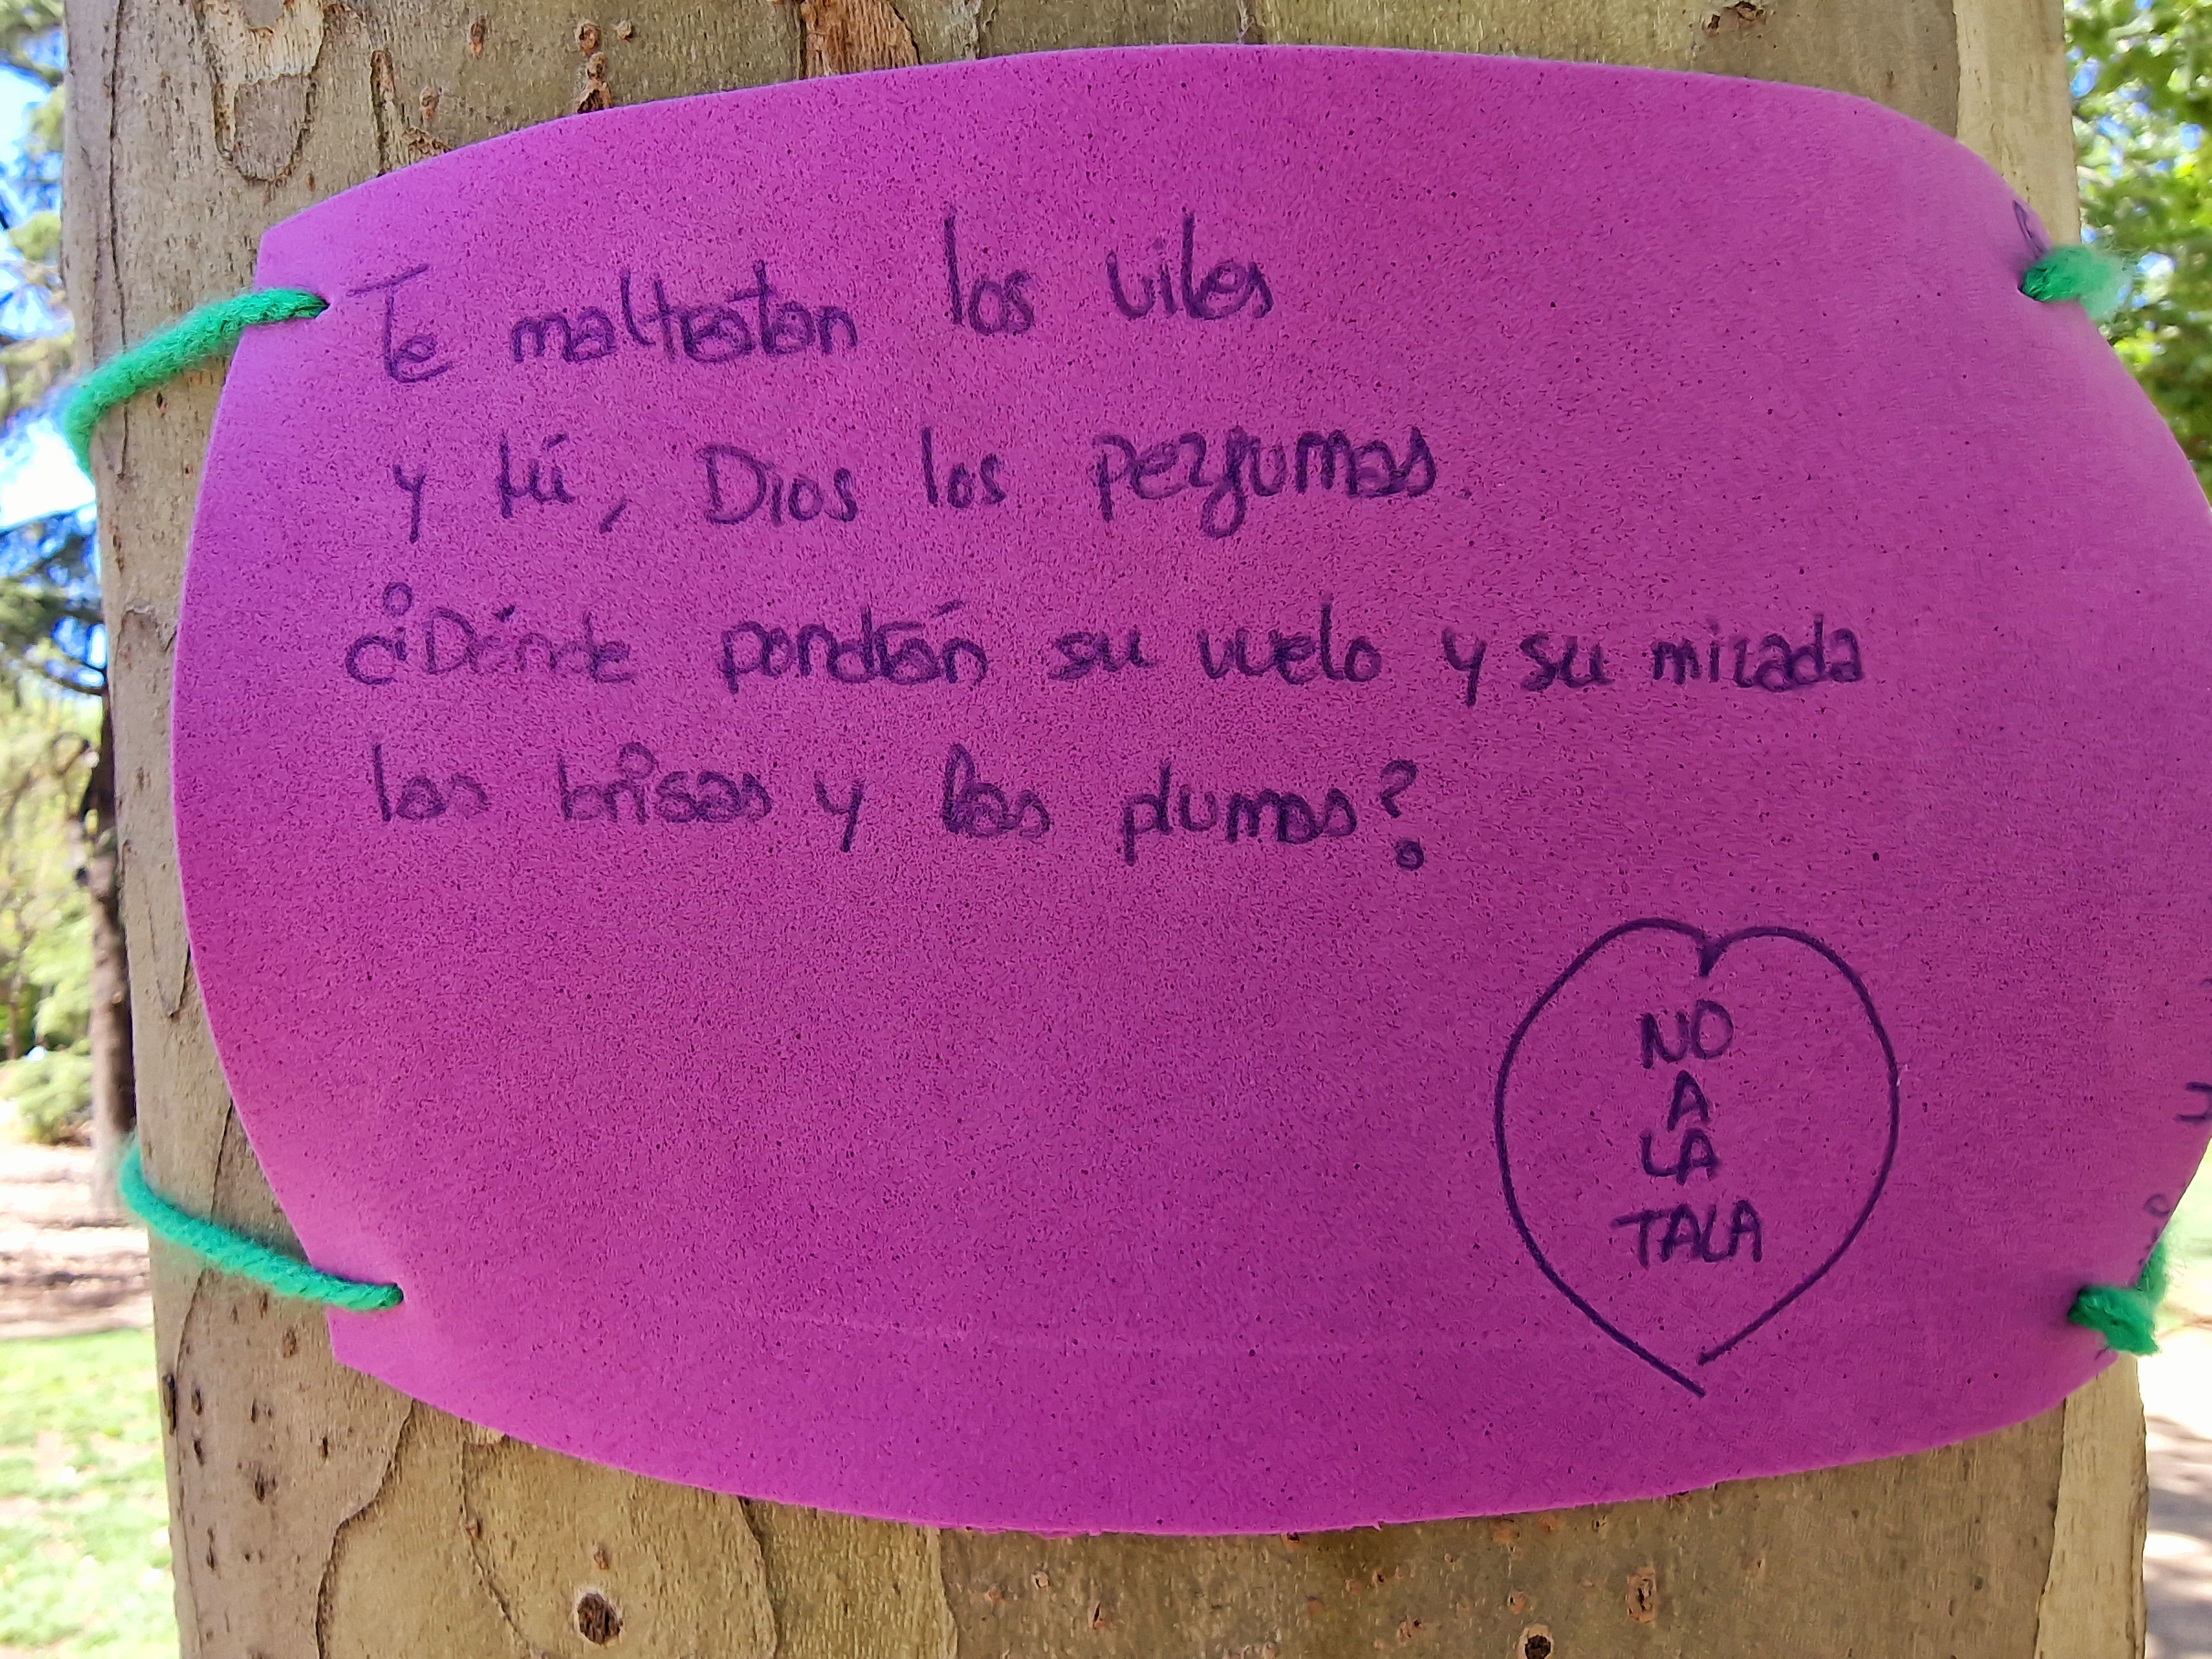 Te maltratan los viles
y tú, Dios los perfumas.
¿Dónde pondrán su vuelo y su mirada
las brisas y las plumas?
NO
A
LA
TALA